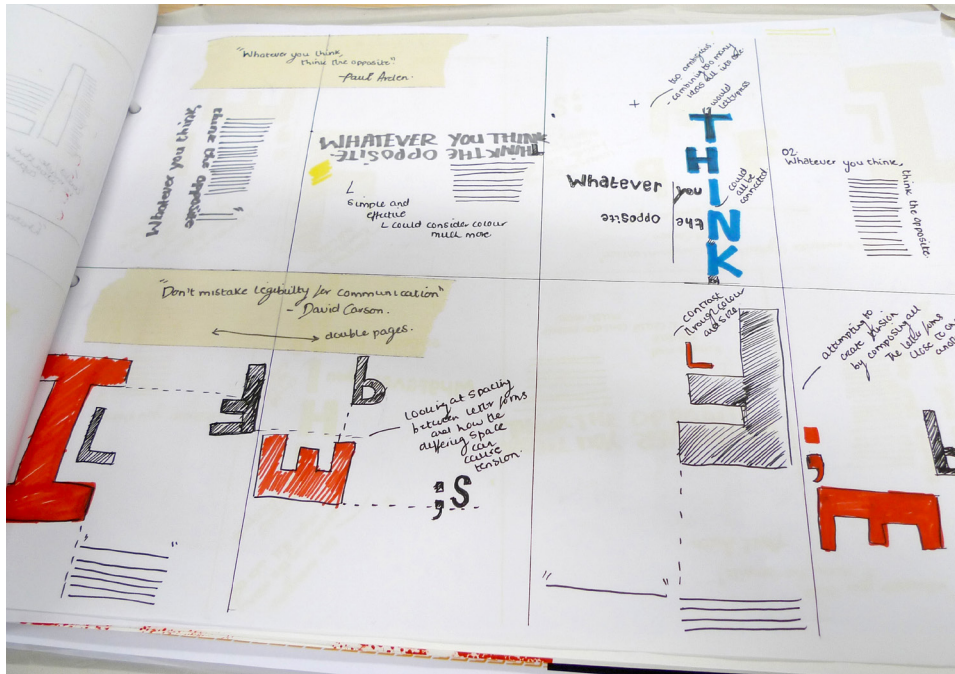 "Whatever you think,
think the opposite"
- Paul Arden.
Whatever you think,
think the opposite
WHATEVER YOU THINK
THINK THE OPPOSITE
Simple and
effective
could consider colour
much more.
+
too ambiguous
- combining too many
ideas all into one.
would
letterpress
THINK
could
all be
connected
Whatever you
opposite the
02.
Whatever you think,
think the opposite.
"Don't mistake legibility for communication"
- David Carson.
double pages.
I
L
E
b
E
;s
looking at spacing
between letter forms
and how the
differing space
can
cause
tension.
contrast
through colour
and size.
L
attempting to
create tension
by composing all
the letter forms
close to
;
E
b